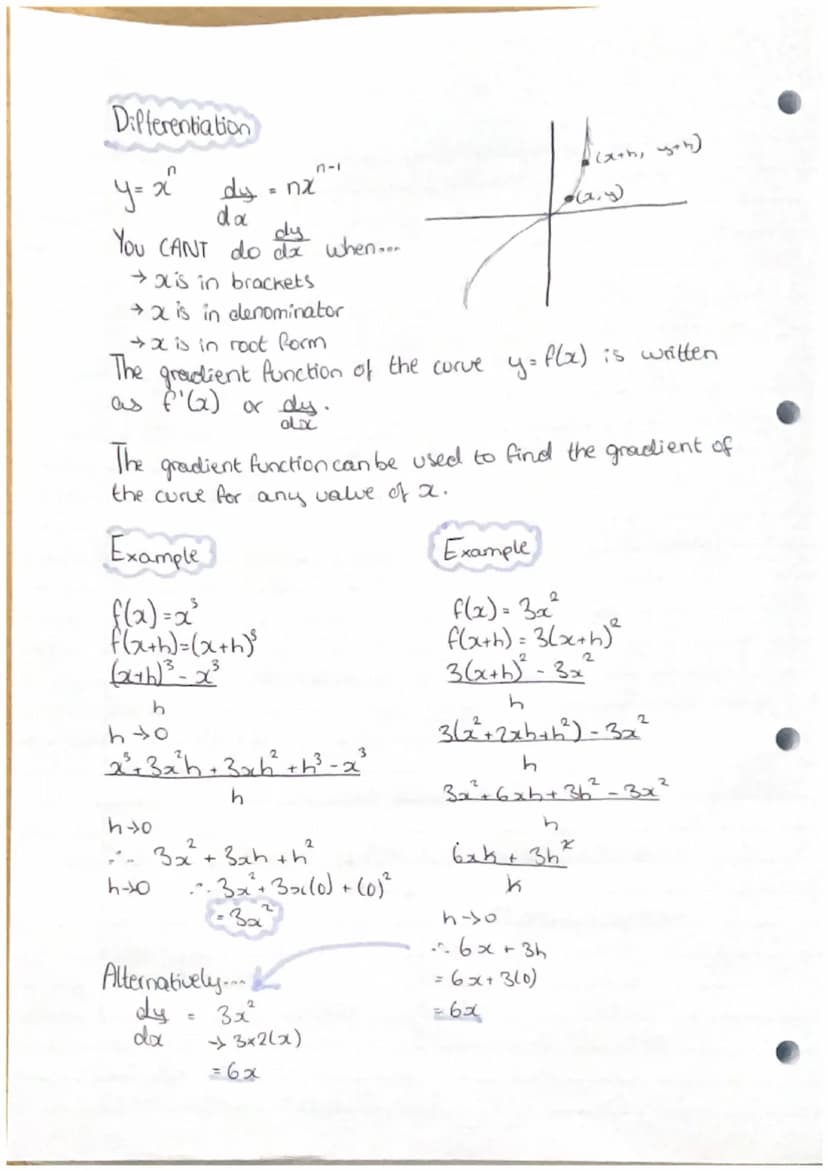 Differentiation
y = xⁿ dy/dx = nxⁿ⁻¹
(x+h, y+h)
(x,y)
You CANT do dy/dx when....
→ x is in brackets
→ x is in denominator
→ x is in root form
The gradient function of the curve y = f(x) is written
as f'(x) or dy/dx.
The gradient function can be used to find the gradient of
the curve for any value of x.
Example
f(x) = x³
f(x+h) = (x+h)³
(x+h)³ - x³
h
h → 0
x³ + 3x²h + 3xh² + h³ - x³
h
h → 0
∴ 3x² + 3xh + h²
h → 0 ∴ 3x² + 3x(0) + (0)²
= 3x²
Alternatively...
dy/dx = 3x²
→ 3×2(x)
= 6x
Example
f(x) = 3x²
f(x+h) = 3(x+h)²
3(x+h)² - 3x²
h
3(x² + 2xh + h²) - 3x²
h
3x² + 6xh + 3h² - 3x²
h
6xh + 3h²
h
h → 0
∴ 6x + 3h
= 6x + 3(0)
= 6x